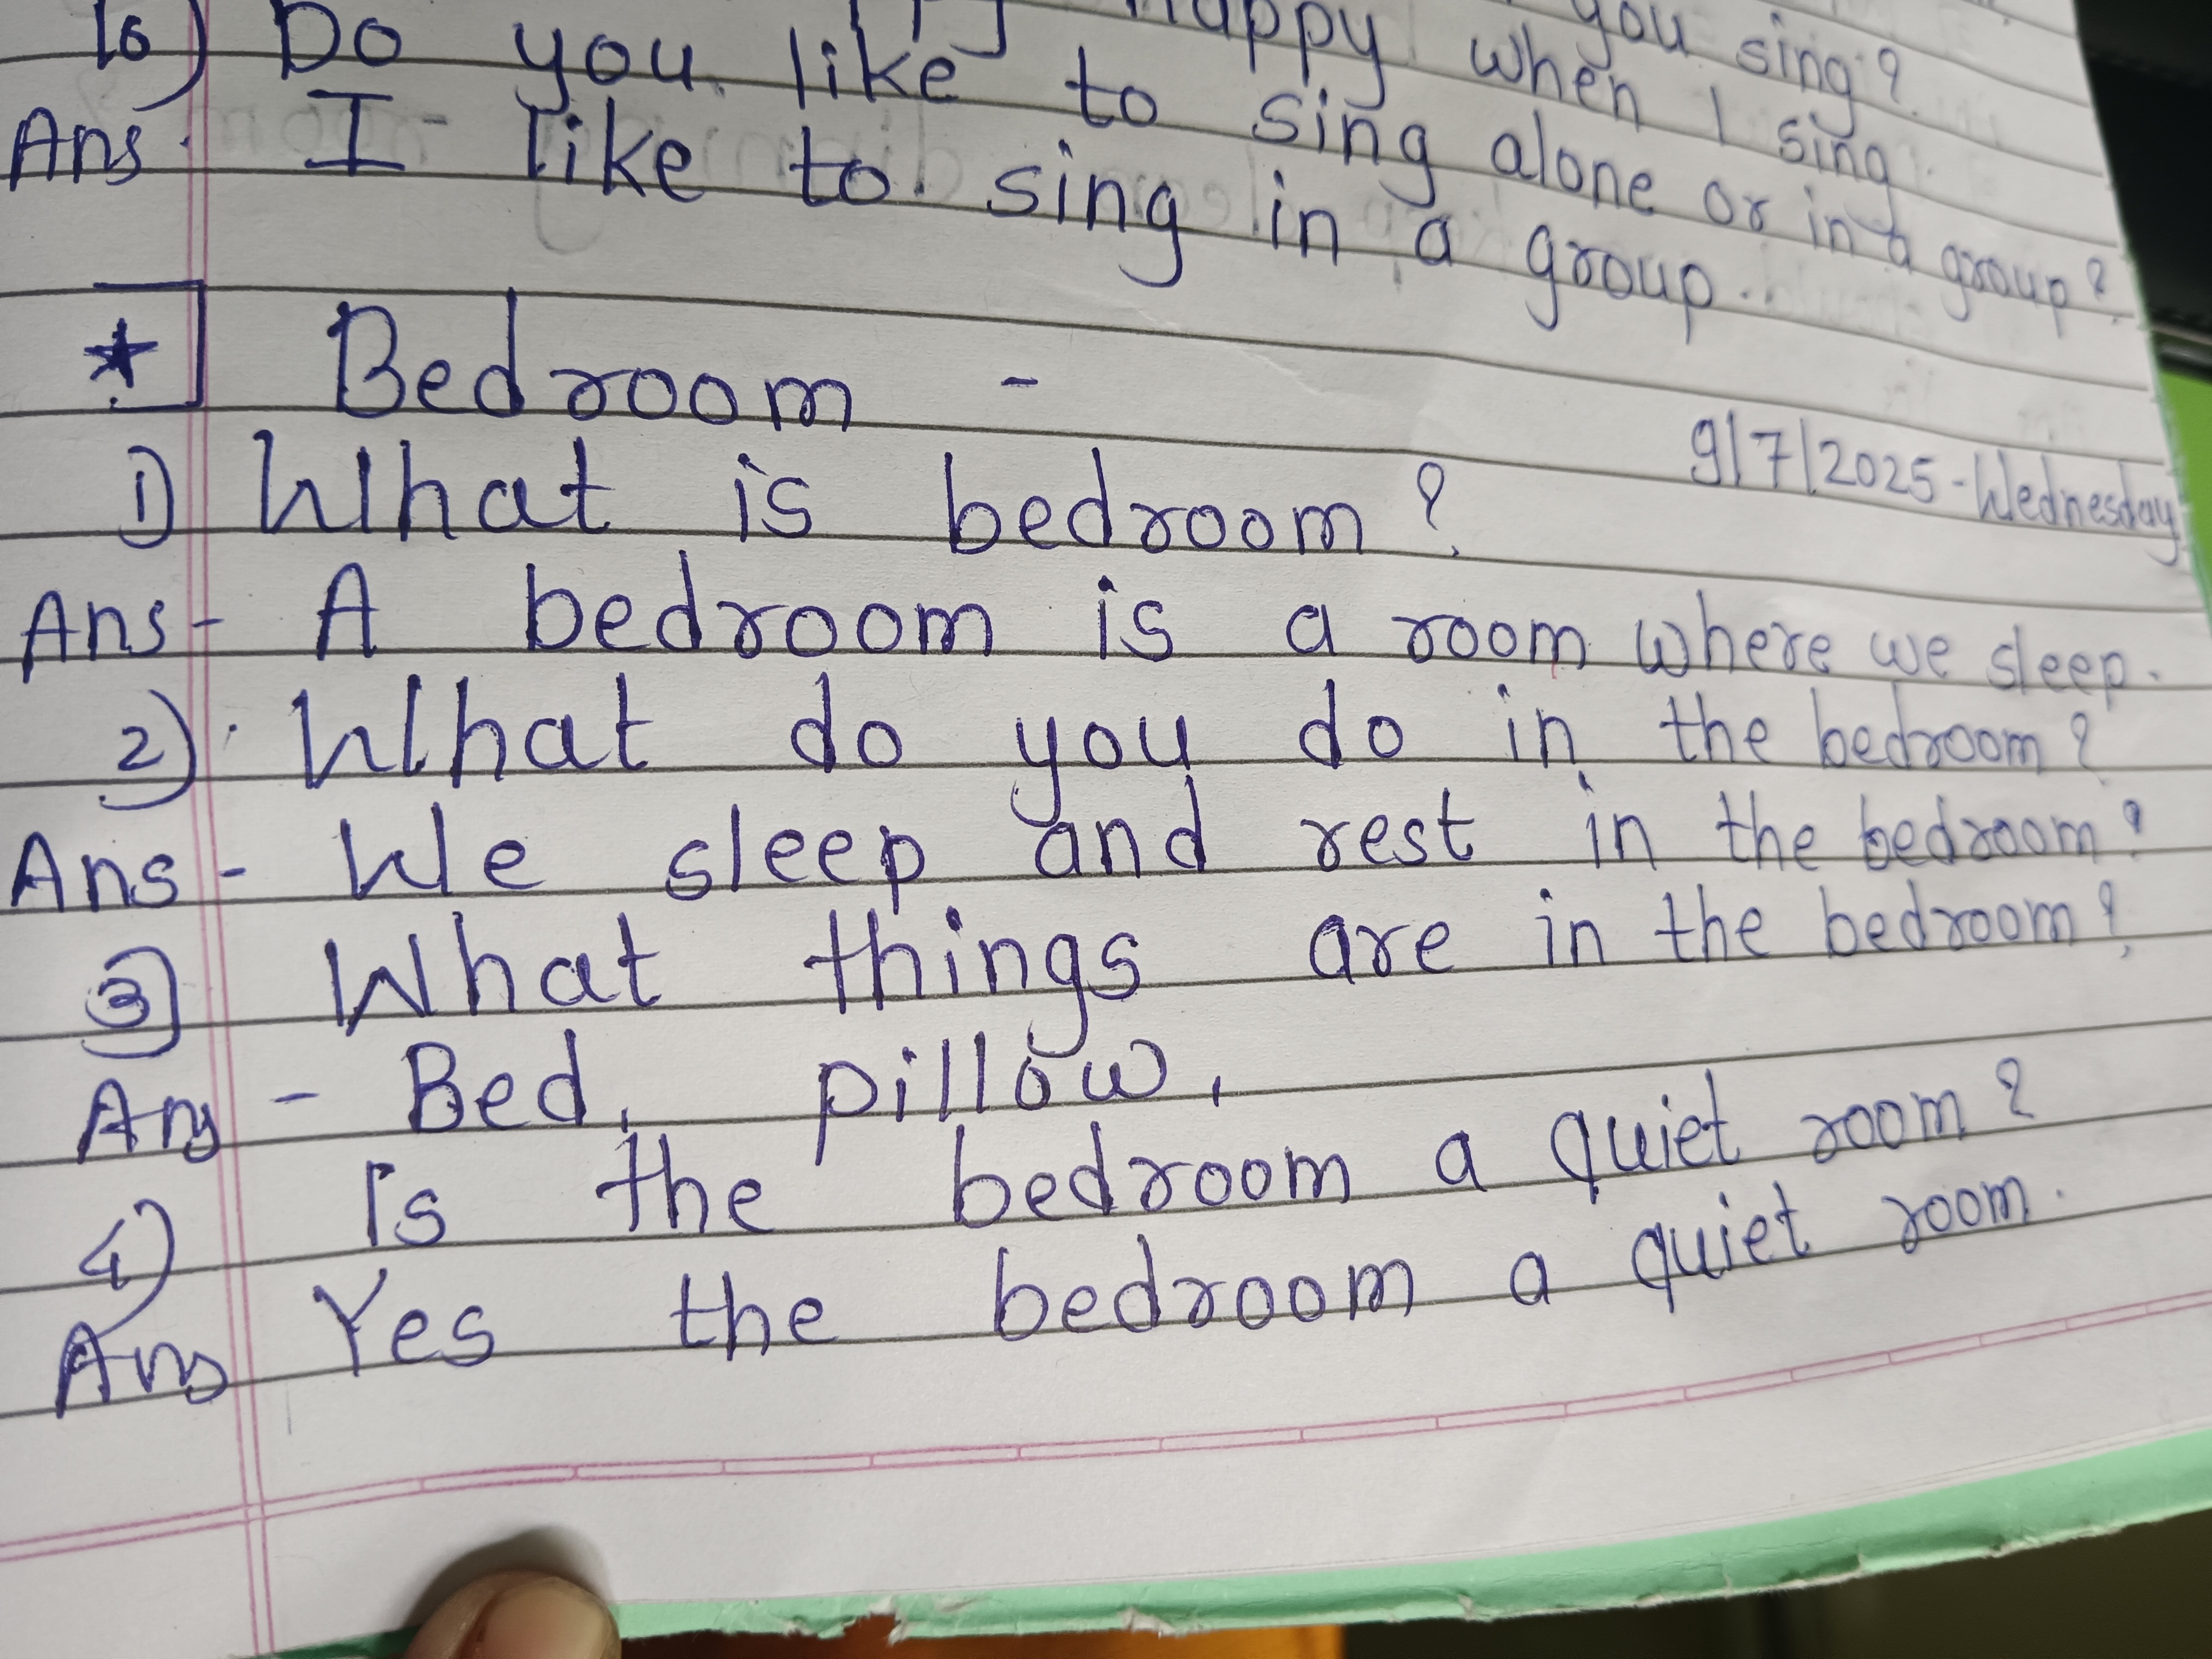 you sing?
happy when I sing.
10) Do you like to sing alone or in a group?
Ans. I like to sing in a group.
* Bedroom -
9/7/2025-Wednesday
1) What is bedroom?
Ans- A bedroom is a room where we sleep.
2) What do you do in the bedroom?
Ans- We sleep and rest in the bedroom?
3) What things are in the bedroom?
Ans- Bed, pillow,
4) Is the bedroom a quiet room?
Ans Yes the bedroom a quiet room.